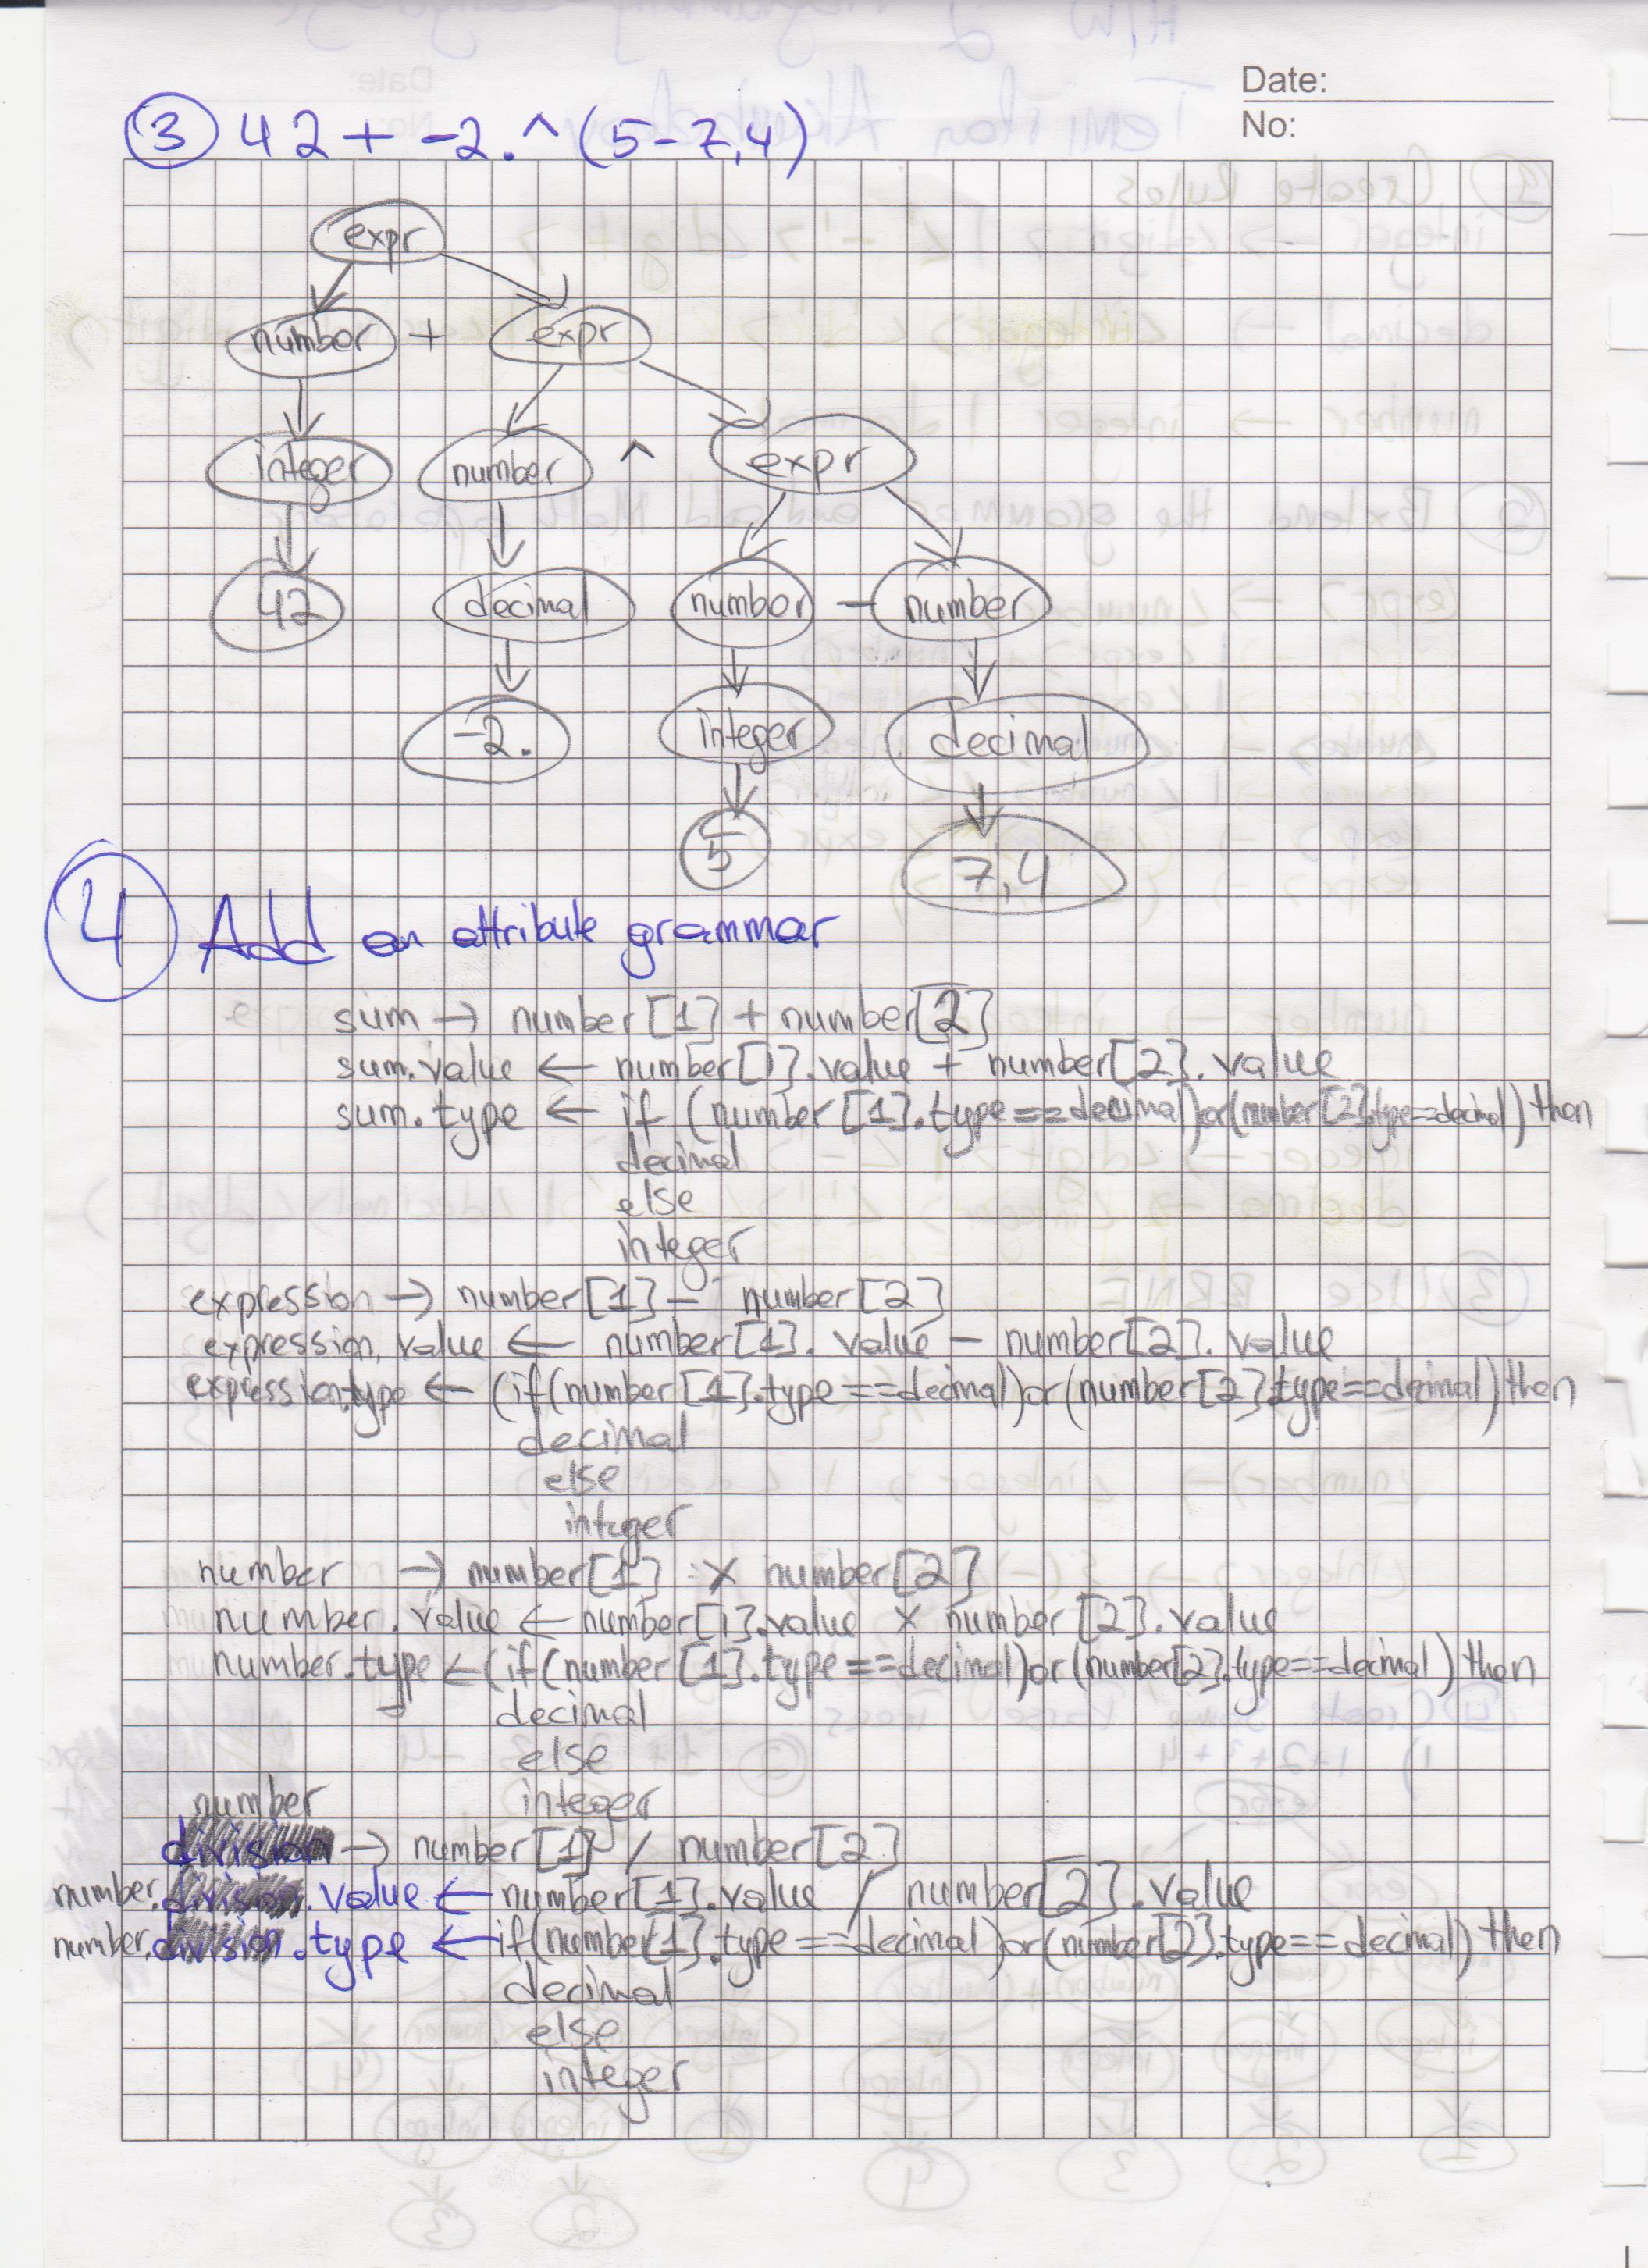 Date:
No:
③ 42 + -2.^(5-7,4)
expr
number + expr
integer number ^ expr
42 decimal numbor - number
-2. integer decimal
5 7,4
④ Add an attribute grammar
sum → number[1] + number[2]
sum.value ← number[1].value + number[2].value
sum.type ← if (number[1].type==decimal)or(number[2].type==decimal) then
decimal
else
integer
expression → number[1] - number[2]
expression.value ← number[1].value - number[2].value
expression.type ← (if(number[1].type==decimal)or(number[2].type==decimal) then
decimal
else
integer
number → number[1] × number[2]
number.value ← number[1].value × number[2].value
number.type ← (if(number[1].type==decimal)or(number[2].type==decimal) then
decimal
else
integer
number
division → number[1] / number[2]
number.division.value ← number[1].value / number[2].value
number.division.type ← if(number[1].type==decimal)or(number[2].type==decimal) then
decimal
else
integer